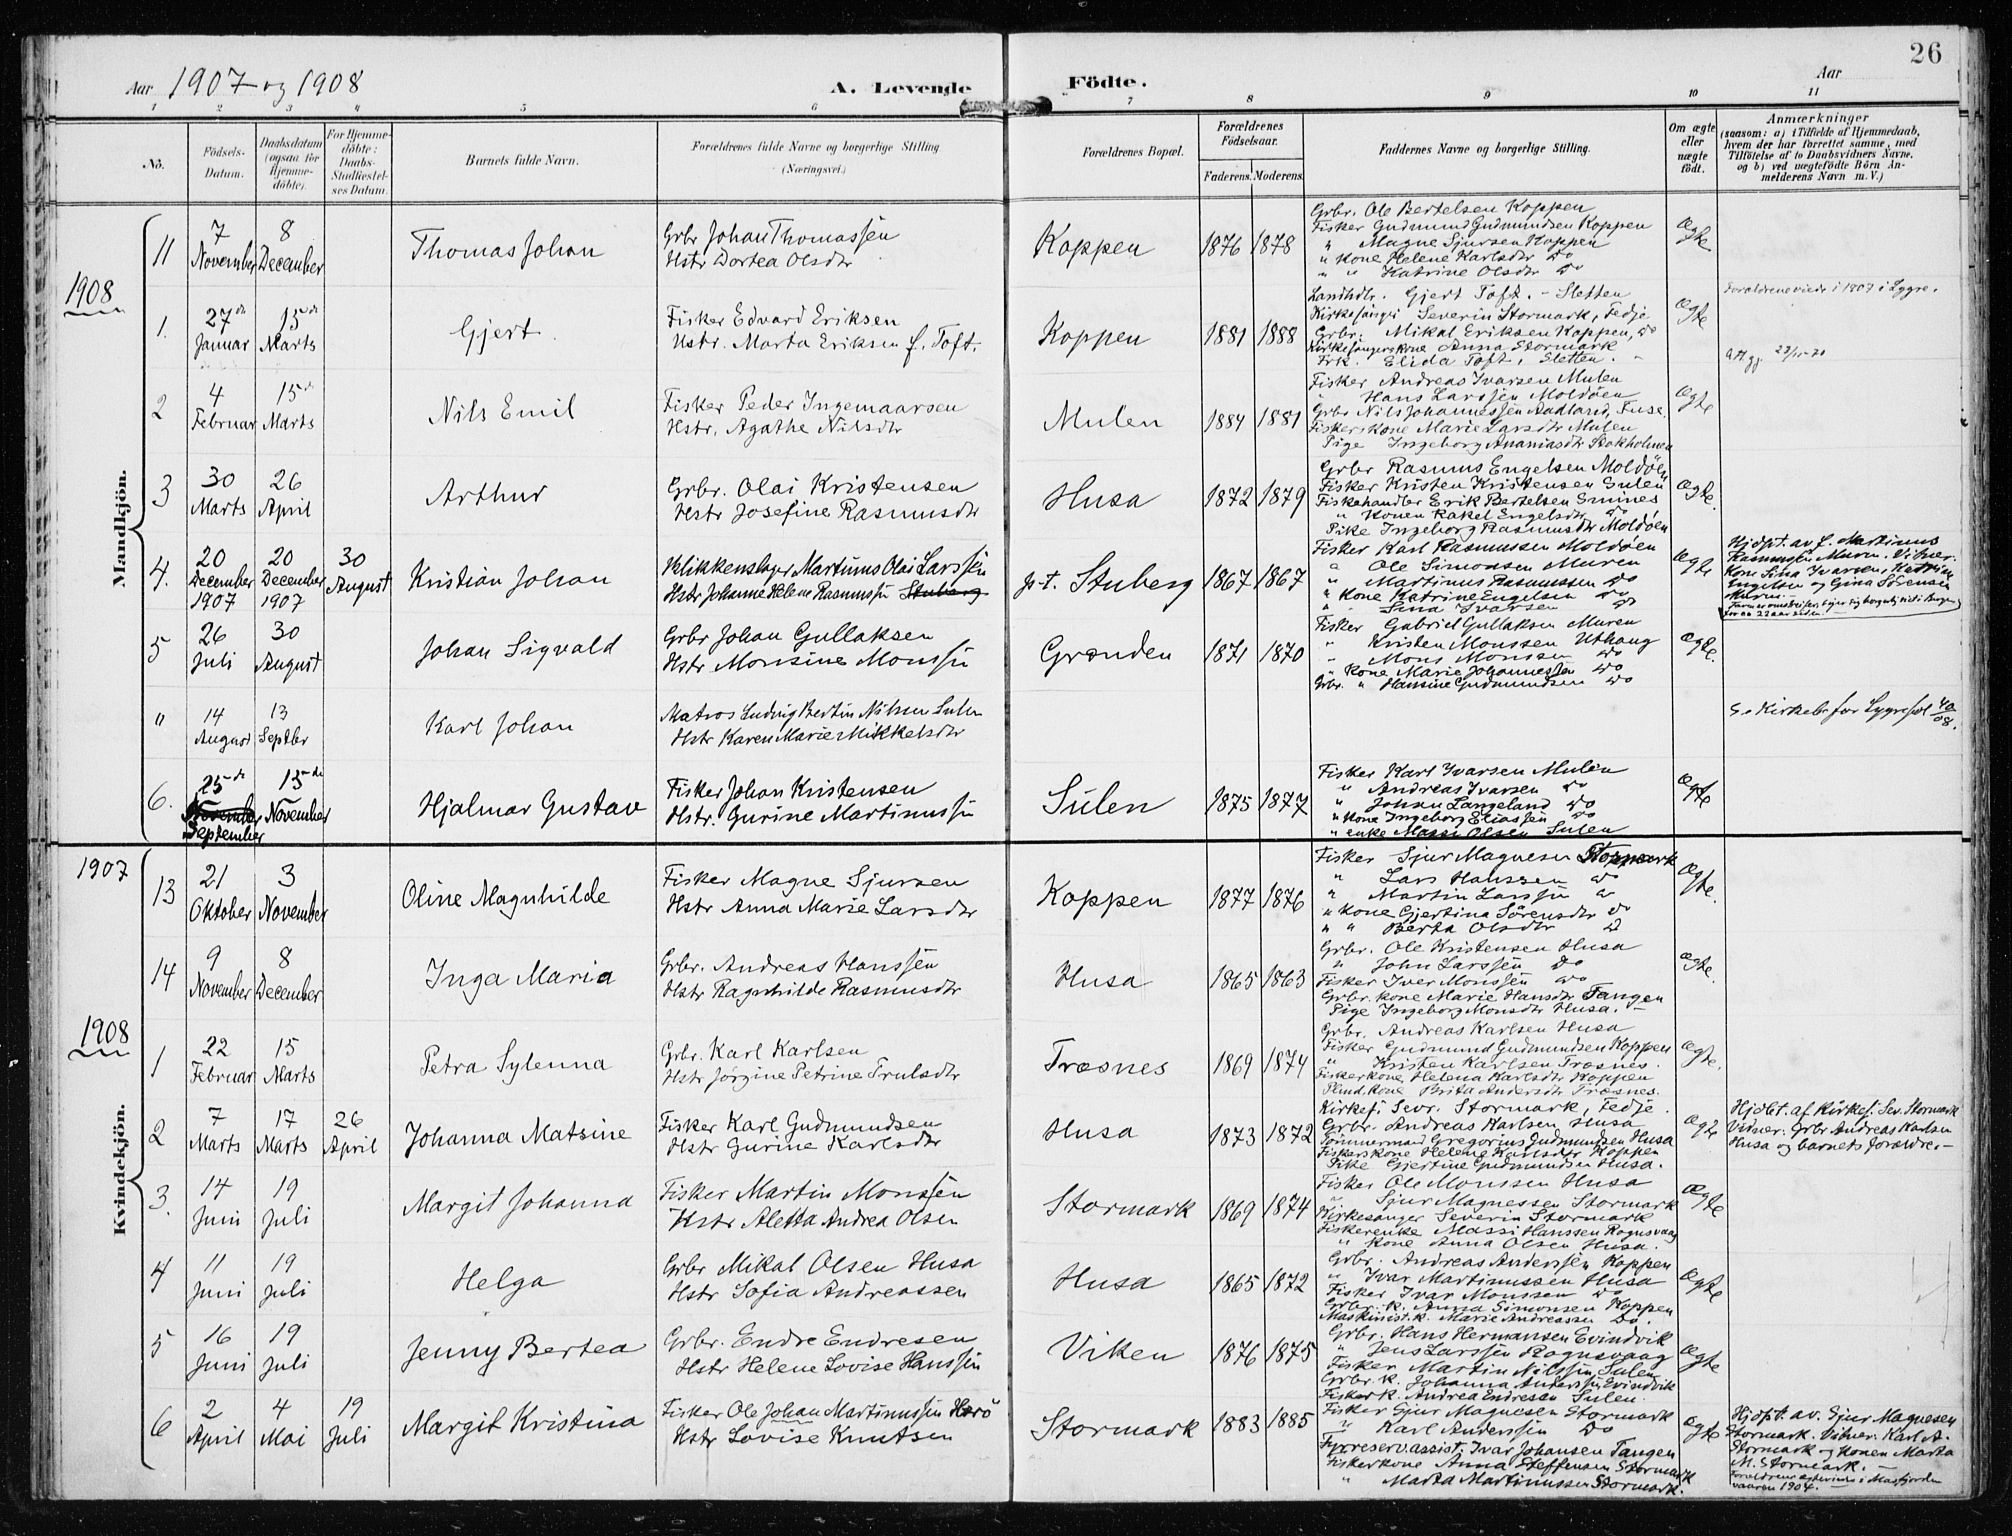 26
Aar 1907 og 1908
A. Levende Födte.
Aar
1 2 3 4 5 6 7 8 9 10 11
No.
Födsels-Datum.
Daabsdatum (ogsaa for Hjemme-döbte).
For Hjemme-döbte: Daabs-Stadfæstel-ses Datum.
Barnets fulde Navn.
Forældrenes fulde Navne og borgerlige Stilling (Næringsvei.)
Forældrenes Bopæl.
Forældrenes Födselsaar.
Faderens. Moderens.
Faddernes Navne og borgerlige Stilling.
Om ægte eller uægte födt.
Anmærkninger
(saasom: a) i Tilfælde af Hjemmedaab,
hvem der har forrettet samme, med
Tilföielse af to Daabsvidners Navne,
og b) ved uægtefödte Börn An-
melderens Navn m. V.)
Mandkjön.
11 7 November 8 December Thomas Johan
Grbr Johan Thomassen
Hstr Dortea Olsdtr
Koppen 1876 1878
Grbr. Ole Bertelsen Koppen
Fisker Gudmund Gudmundsen Koppen
" Magne Sjursen Koppen
" Kone Helene Karlsdtr Do
" " Katrine Olsdtr Do
Ægte.
1908
1. 27de Januar 15de Marts Gjert.
Fisker Edvard Eriksen
Hstr. Marta Eriksen f. Toft.
Koppen 1881 1888
Landhdlr. Gjert Toft. - Sletten
Kirkesanger Severin Stormark, Fedje
Grbr. Mikal Eriksen Koppen, Do
Kirkesangerskone Anna Stormark
Frk. Elida Toft, Sletten.
Ægte
Forældrene viede i 1907 i Lygre.
2 4 Februar 15de Marts Nils Emil
Fisker Peder Ingemaarsen
Hstr. Agathe Nilsdtr
Mulen 1884 1881
Fisker Andreas Ivarsen Mulen
" Hans Larssen Moldöen
Grbr Nils Johannessen Aadland, Fuse.
Fiskerskone Marie Larsdtr Mulen
Pige Ingeborg Ananiasdtr Stokholmen
Ægte
3 30 Marts 26 April Arthur
Grbr. Olai Kristensen
Hstr Josefine Rasmusdtr
Husa 1872 1879
Grbr Rasmus Engelsen Moldöen
Fisker Kristen Kristensen Sulen
Fiskehandler Erik Bertelsen
" Konen Rakel Engelsdtr Do
Pike Ingeborg Rasmusdtr Moldöen
Ægte.
4. 20 December 1907 20 December 1907 30 August Kristian Johan
Blikkenslager Martinus Olai Larssen
Hstr Johanne Helene Rasmussen Stuberg
p.t. Stuberg 1867 1867
Fisker Karl Rasmussen Moldöen
" Ole Simonsen Muren
" Martinus Rasmussen Do
" Kone Katrine Engelsen Do
" " Sina Ivarsen Do
Ægte
Hjdpt. av f. Martinus
Rasmussen Muren. Vitner:
Kone Sina Ivarsen, Katrine
Engelsen og Gina Sörensen
Muren.
5 26 Juli 30 August Johan Sigvald
Grbr Johan Gullaksen
Hstr Monsine Monssen
Grønden 1871 1870
Fisker Gabriel Gullaksen Muren
" Kristen Monssen Uthaug
" Mons Monssen Do
" Kone Marie Johannessen Do
Grbr. " Hansine Gudmundsen Do
Ægte.
" 14 August 13 Septbr Karl Johan
Matros Ludvig Bertin Nilsen Sulen
Hstr Karen Marie Mikkelsdtr
S. Kirkeb. for Lygresol 40/08.
6. 25de November September 15de November Hjalmar Gustav
Fisker Johan Kristensen
Hstr. Gurine Martinussen
Sulen 1875 1877
Fisker Karl Ivarsen Mulen
" Andreas Ivarsen Do
" Johan Langeland Do
" Kone Ingeborg Eliassen Do
" enke Massi Olsen Sulen
Ægte
Kvindekjön.
1907
13 21 Oktober 3 November Oline Magnhilde
Fisker Magne Sjursen
Hstr Anna Marie Larsdtr
Koppen 1877 1876
Fisker Sjur Magnesen Stormark
" Lars Hanssen Do
" Martin Larssen Do
" Kone Gjertina Sörensdtr Do
" " Berta Olsdtr Do
Ægte.
14 9 November 8 December Inga Maria
Grbr. Andreas Hanssen
Hstr Ragnhilde Rasmusdtr
Husa 1865 1863
Grbr. Ole Kristensen Husa
" John Larssen Do
Fisker Iver Monssen Do
Grbr. kone Marie Hansdtr Tangen
Pige Ingeborg Monsdtr Husa.
Ægte.
1908
1 22 Februar 15 Marts Petra Sylenna
Grbr. Karl Karlsen
Hstr Jörgine Petrine Trulsdtr
Træsnes 1869 1874
Grbr. Andreas Karlsen Husa
Fisker Gudmund Gudmundsen Koppen
" Kristen Karlsen Træsnes.
Fiskerkone Helena Karlsdtr Koppen
kone Brita Andersdtr Træsnes.
Ægte.
2 7 Marts 17 Marts 26 April Johanna Matsine
Fisker Karl Gudmundsen
Hstr Gurine Karlsdtr
Husa 1873 1872
Kirkes. Sevr. Stormark, Fedje.
Grbr. Andreas Karlsen Husa
Tømmermand Gregorius Gudmundsen Husa
Fiskerskone Helene Karlsdtr Koppen
Pike Gjertine Gudmundsen Husa.
Ægte
Hjdbt. af Kirkes. Sev. Stormark
Vidner: Grbr Andreas Karlsen
Husa og barnets forældre.-
3. 14 Juni 19 Juli Margit Johanna
Fisker Martin Monssen
Hstr Aletta Andrea Olsen
Stormark 1869 1874
Fisker Ole Monssen Husa
" Sjur Magnesen Stormark
Kirkesanger Severin Stormark
Fiskerenke Massi Hanssen Rognsvaag
" kone Anna Olsen Husa.
Ægte
4 11 Juni 19 Juli Helga
Grbr Mikal Olsen Husa
Hstr Sofia Andreassen
Husa 1865 1872
Grbr. Andreas Anderssen Koppen
" Ivar Martinussen Husa
Fisker Ivar Monssen Do
Grbr. k. Anna Simonsen Koppen
Maskinist.k. Marie Andreassen Do.
Ægte
5 16 Juni 19 Juli Jenny Bertea
Grbr. Endre Endresen
Hstr Helene Lovise Hanssen
Viken 1876 1875
Grbr. Hans Hermansen Evindvik
" Jens Larssen Rognsvaag
Fisker Martin Nilssen Sulen
Grbr. k. Johanna Anderssen Evindvik
Fisker k. Andrea Endresen Sulen.
Ægte
6 2 April 4 Mai 19 Juli Margit Kristina
Fisker Ole Johan Martinussen Herö
Hstr Lovise Knutsen
Stormark 1883 1885
Fisker Sjur Magnesen Stormark
" Karl Anderssen Do
Fyrreserv.assist. Ivar Johansen Tangen
Fiskerkone Anna Steffensen Stormark
" Marta Martinussen Stormark.
Ægte
Hjdpt. av. Sjur Magnesen
Stormark. Vitner: Karl A.
Stormark og konen Marta
M. Stormark.
Forældrene ægteviede i Masfjorden
vaaren 1904.